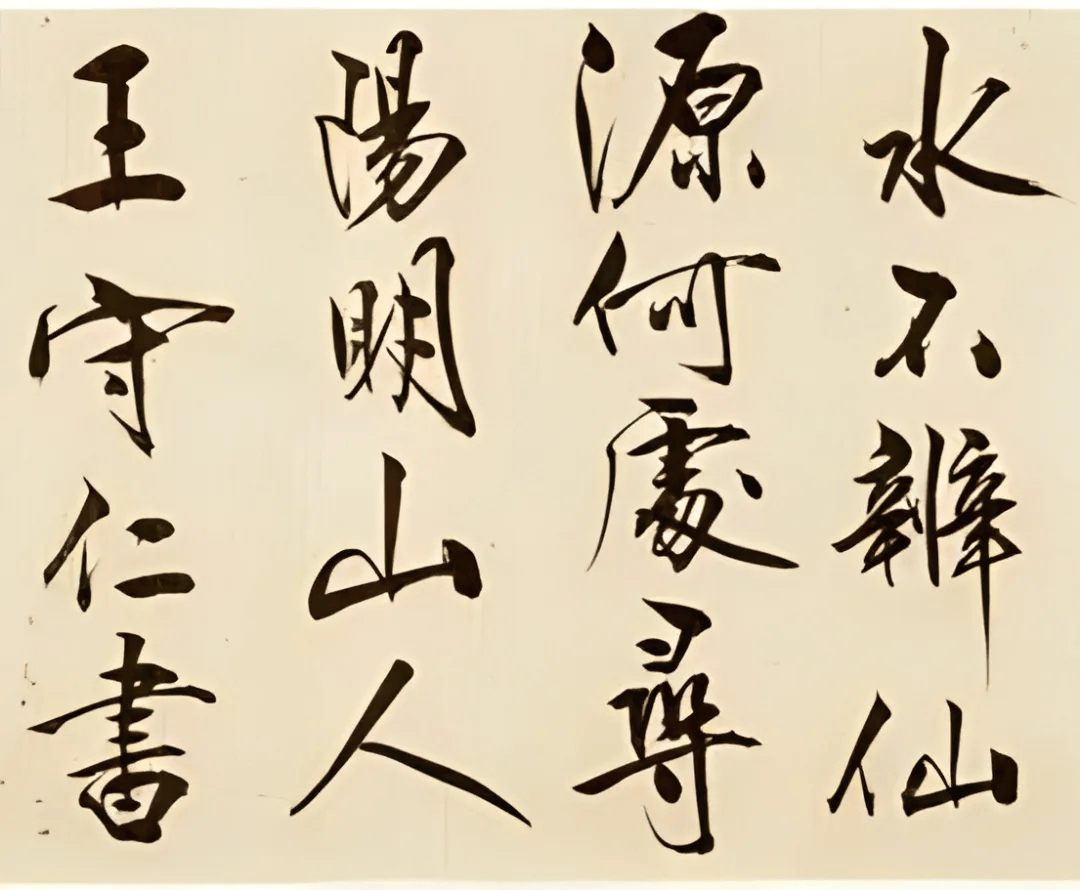 水不辨仙
源何處尋
陽明山人
王守仁書